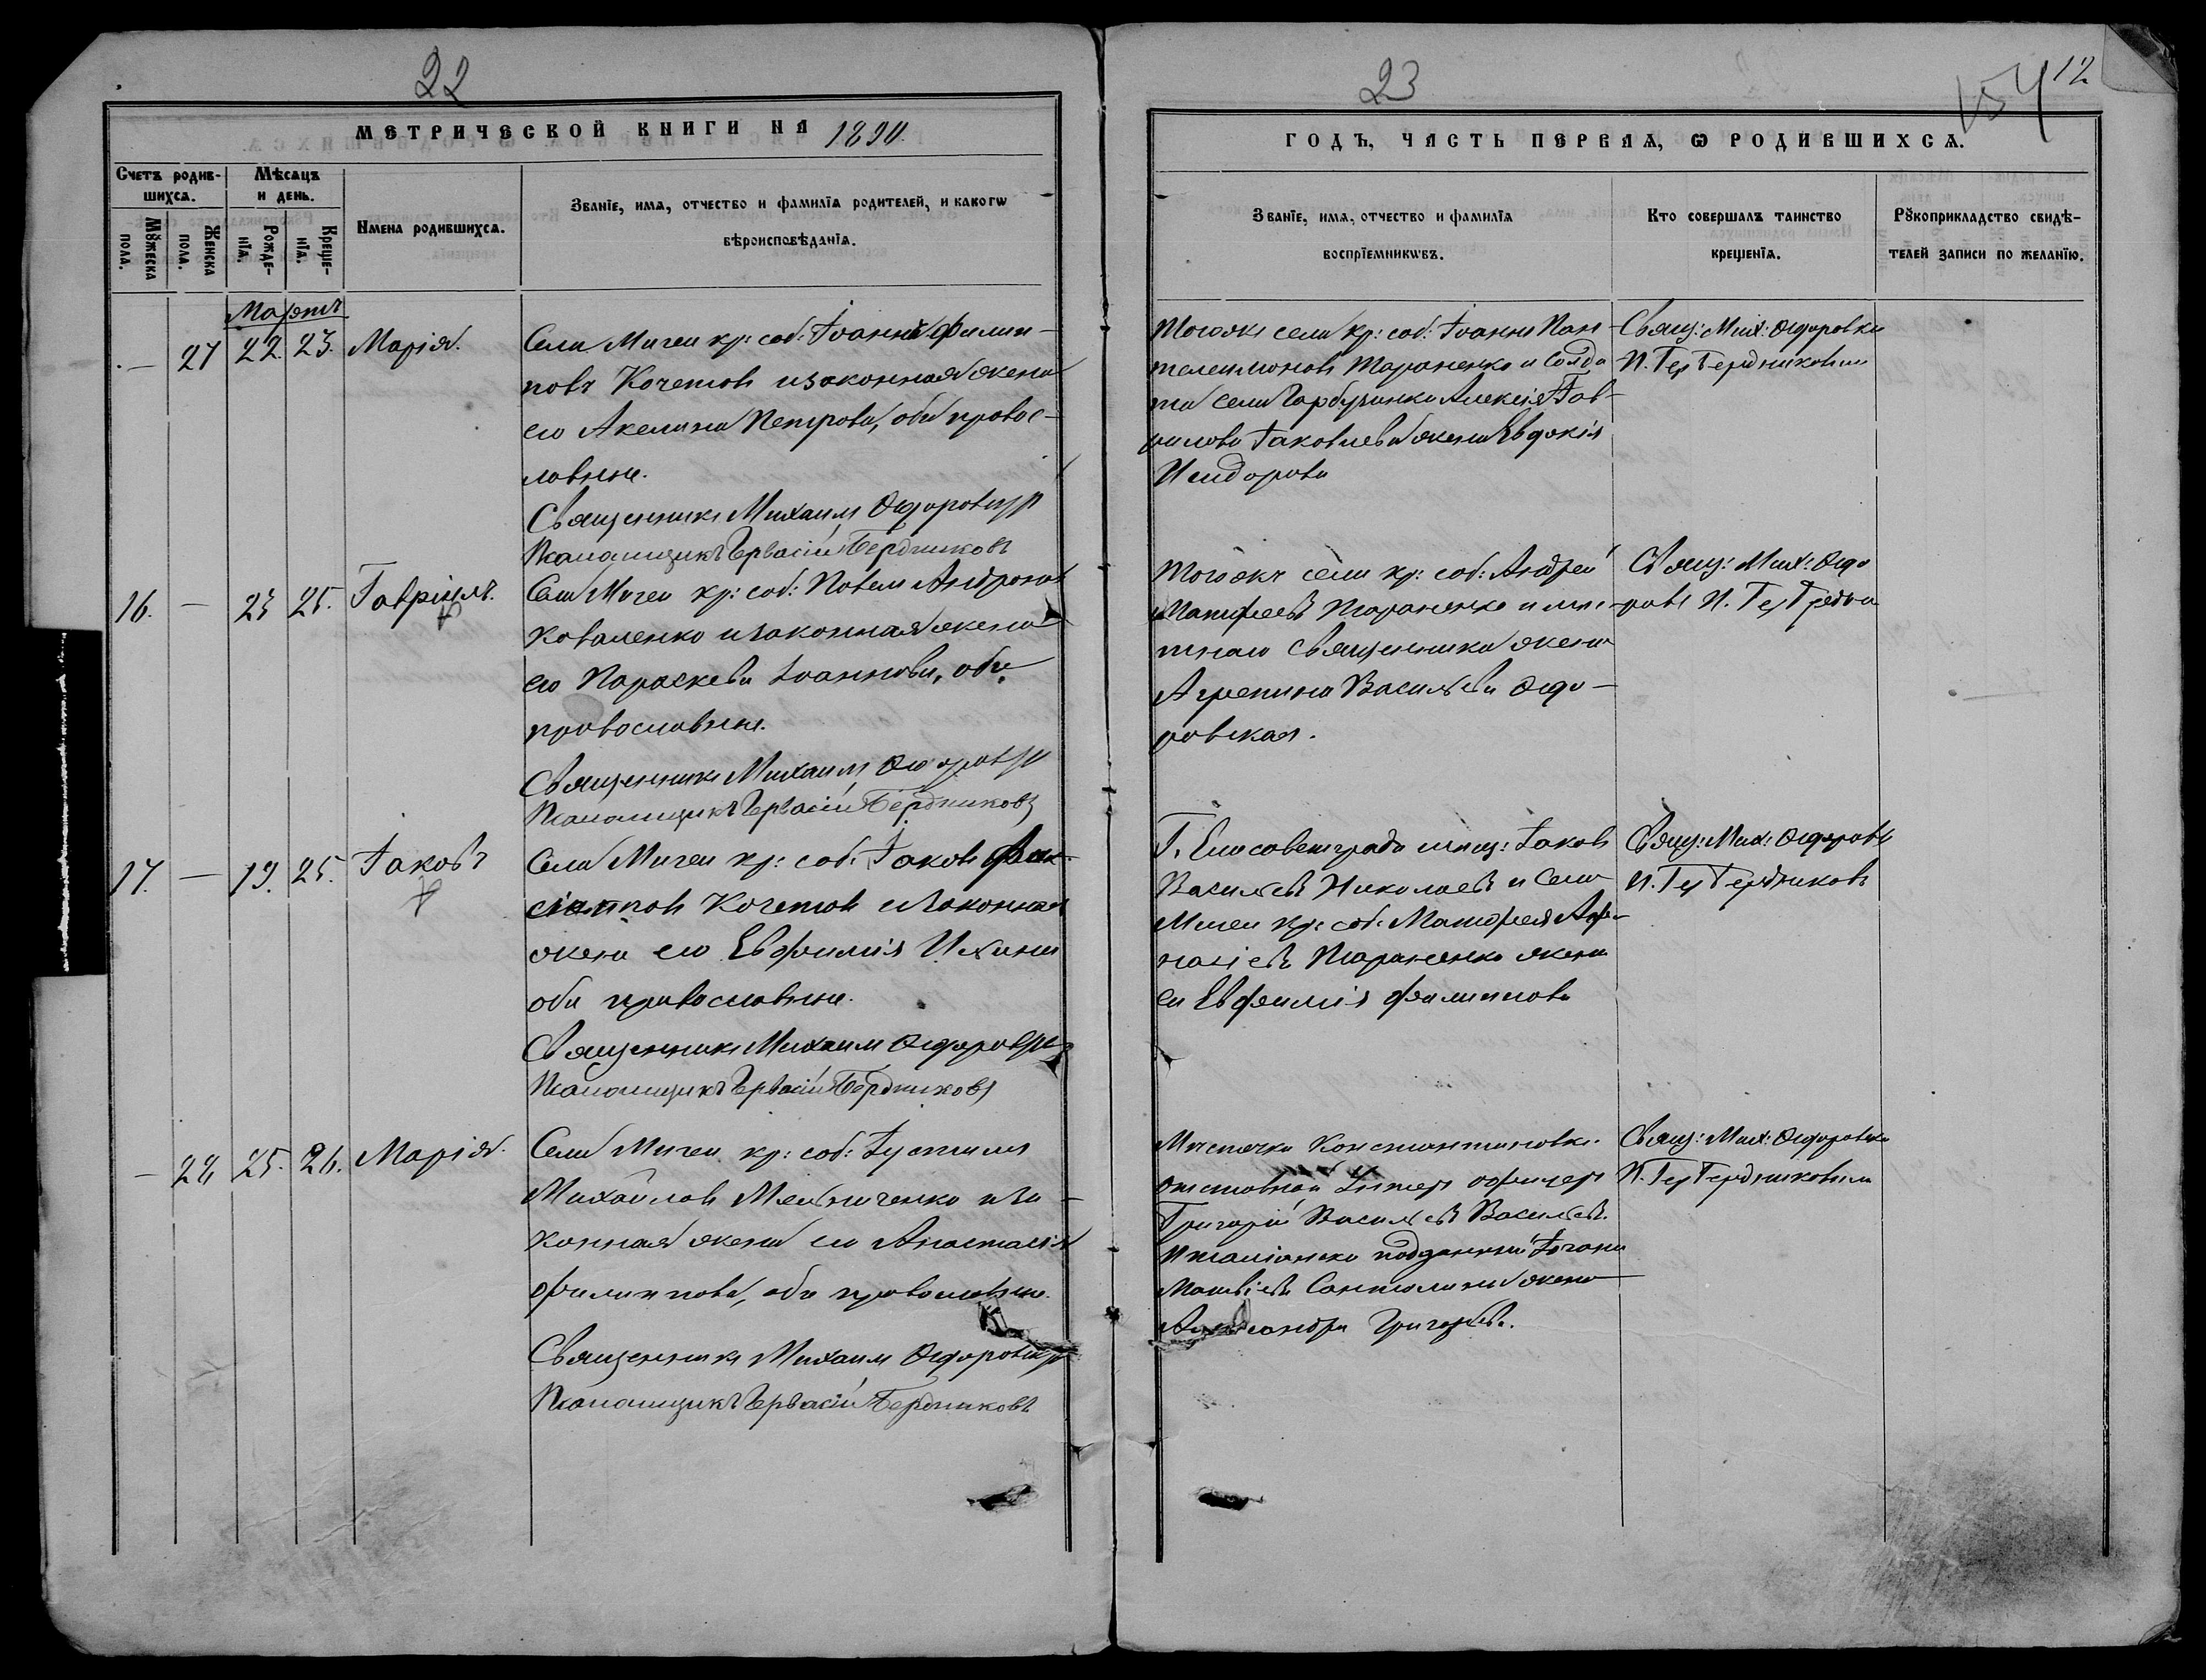 22
МЕТРИЧЕСКОЙ КНИГИ НА 1890.
Счетъ родив-
шихсѧ.
Мѣсѧцъ
и день.
Мꙋжеска
пола.
Женска
пола.
Рожде-
нїѧ.
Креще-
нїѧ.
Имена родившихсѧ.
Званїе, имѧ, отчество и фамилїѧ родителей, и какогѡ
вѣроисповѣданїѧ.
Мартъ
— 27 22. 23. Марія.
Села Мигеи кр: соб: Іоаннъ Филип-
повъ Кочетовъ и законная жена
его Акелина Петрова, оба правос-
лавные.
Священникъ Михаилъ
Псаломщикъ Гервасій Бердниковъ
16. — 23 25. Гавріилъ.
Села Мигеи кр: соб: Павелъ
Коваленко и законная жена
его Параскева Іоаннова, оба
православные.
Священникъ Михаилъ
Псаломщикъ Гервасій Бердниковъ
17. — 19. 25. Іаковъ
Села Мигеи кр: соб: Іаковъ
Кочетовъ и законная
жена его Евфимія
оба православные.
Священникъ Михаилъ
Псаломщикъ Гервасій Бердниковъ
— 28 25. 26. Марія.
Села Мигеи кр: соб: Іустинъ
Михайловъ Мельниченко и за-
конная жена его Анастасія
Филиппова, оба православные.
Священникъ Михаилъ
Псаломщикъ Гервасій Бердниковъ
23
154 12
ГОДЪ, ЧАСТЬ ПЕРВАѦ, Ѡ РОДИВШИХСѦ.
Званїе, имѧ, отчество и фамилїѧ
воспрїемникѡвъ.
Кто совершалъ таинство
крещенїѧ.
Рꙋкоприкладство свидѣ-
телей записи по желанїю.
Тогоже села кр: соб: Іоаннъ Пан-
телеимоновъ Тараненко и солда
та села Гарбузинки Алексія Гав-
рилова Іаковлева жена Евдокія
Исидорова
Свящ: Мих:
П. Гер Бердниковъ
Тогожъ села кр: соб: Андрей
Матфеевъ Тараненко и мѣс-
тнаго священника жена
Агрепина Васильева Ѳедо-
ровская.
Свящ: Мих: Ѳедо
П. Гер
Г. Елисаветграда мѣщ: Іаковъ
Васильевъ Николаевъ и села
Мигеи кр: соб: Матфея Афа-
насіевъ Тараненко жена
Евфимія Филиппова
Свящ: Мих:
П. Гер Бердниковъ
Мѣстечка Константиновки
отставной унтеръ офицеръ
Григорій Васильевъ Васильевъ.
Италіанско подданный
Матвіевъ Сантолини жена
Александра Григорьева.
Свящ: Мих:
П. Гер Бердниковъ